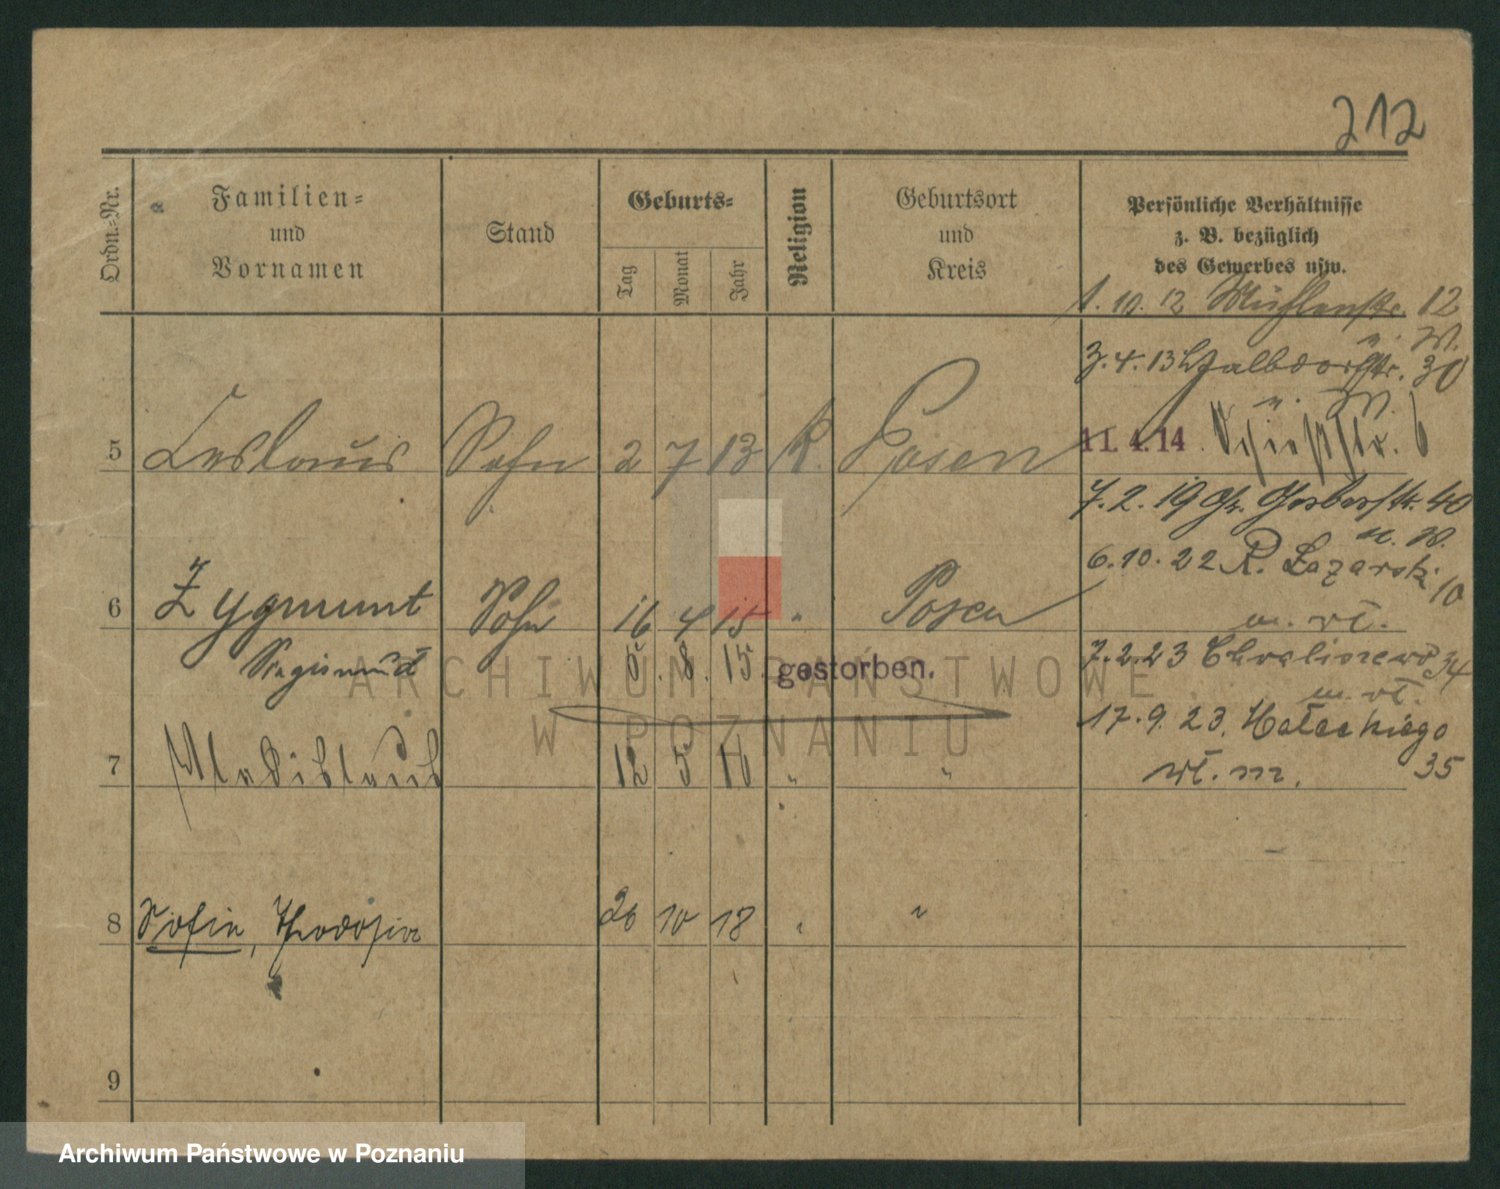 212
Ordn.-Nr.
Familien-
und
Vornamen
Stand
Geburts-
Tag
Monat
Jahr
Religion
Geburtsort
und
Kreis
Persönliche Verhältnisse
z. B. bezüglich
des Gewerbes usw.
1. 10. 12 Mühlenstr. 12
u. W.
3. 4. 13 Halbdorfstr. 30
u. W.
5 Leslaus Sohn 2 7 13 K. Posen 11. 4. 14. Schießstr. 6
7. 2. 19 Gr. Gerberstr. 40
u. W.
6. 10. 22 R. Lazarski 10
6 Zygmunt Sohn 16 4 15 " Posen m. wł.
Siegismund 5. 8. 15. gestorben. 7. 2. 23 Chwaliszewo 34
m. wł.
17. 9. 23. Małeckiego
7 Wladislaus 12 5 16 " " wł. m. 35
8 Sofie, Theodosia 26 10 18 " "
9
ARCHIWUM PAŃSTWOWE
W POZNANIU
Archiwum Państwowe w Poznaniu